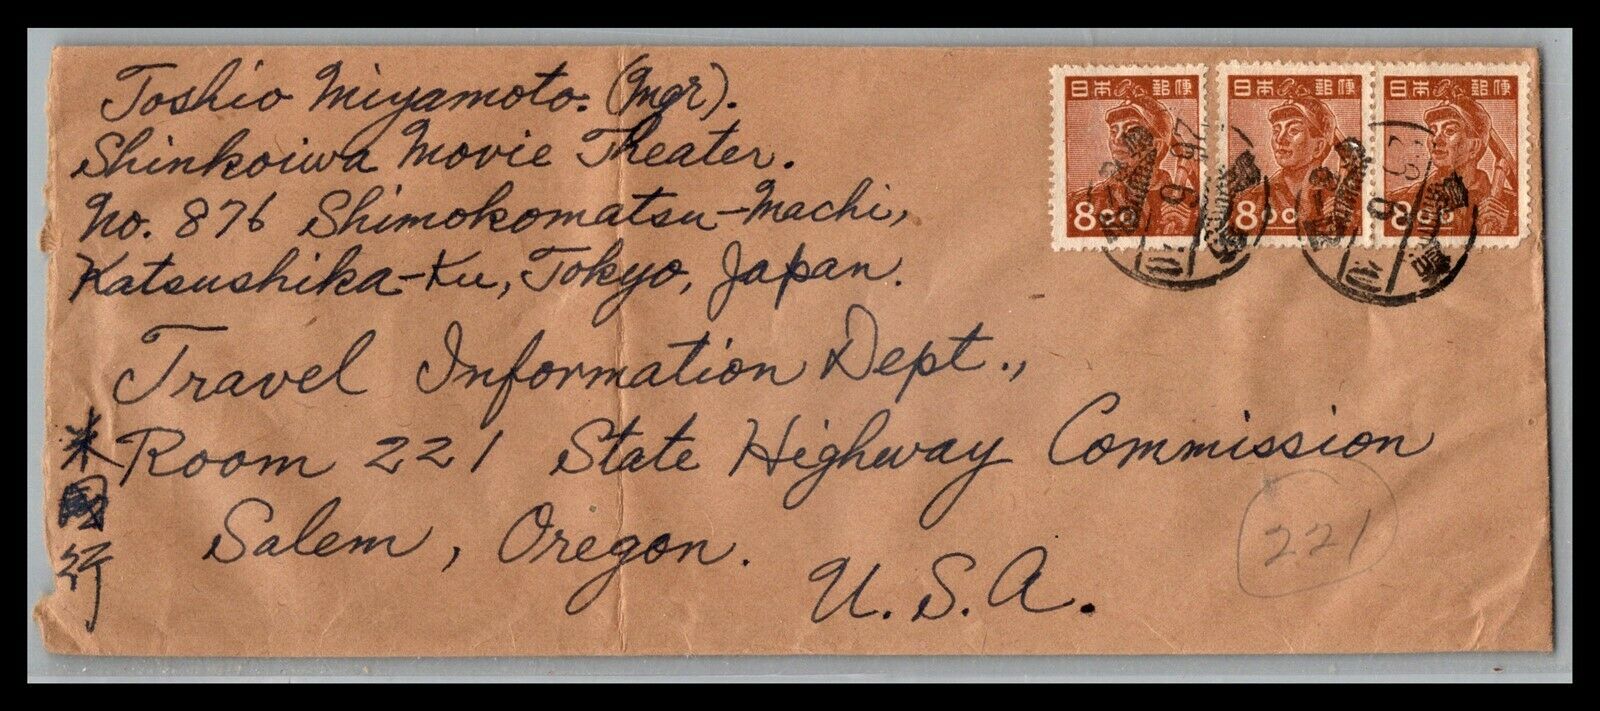 Toshio Miyamoto. (Mgr).
Shinkoiwa Movie Theater.
No. 876 Shimokomatsu-Machi,
Katsushika-Ku, Tokyo, Japan.
Travel Information Dept.,
Room 221 State Highway Commission
Salem, Oregon.
U.S.A.
米國行
日本郵便
8.00
日本郵便
8.00
日本郵便
8.00
221